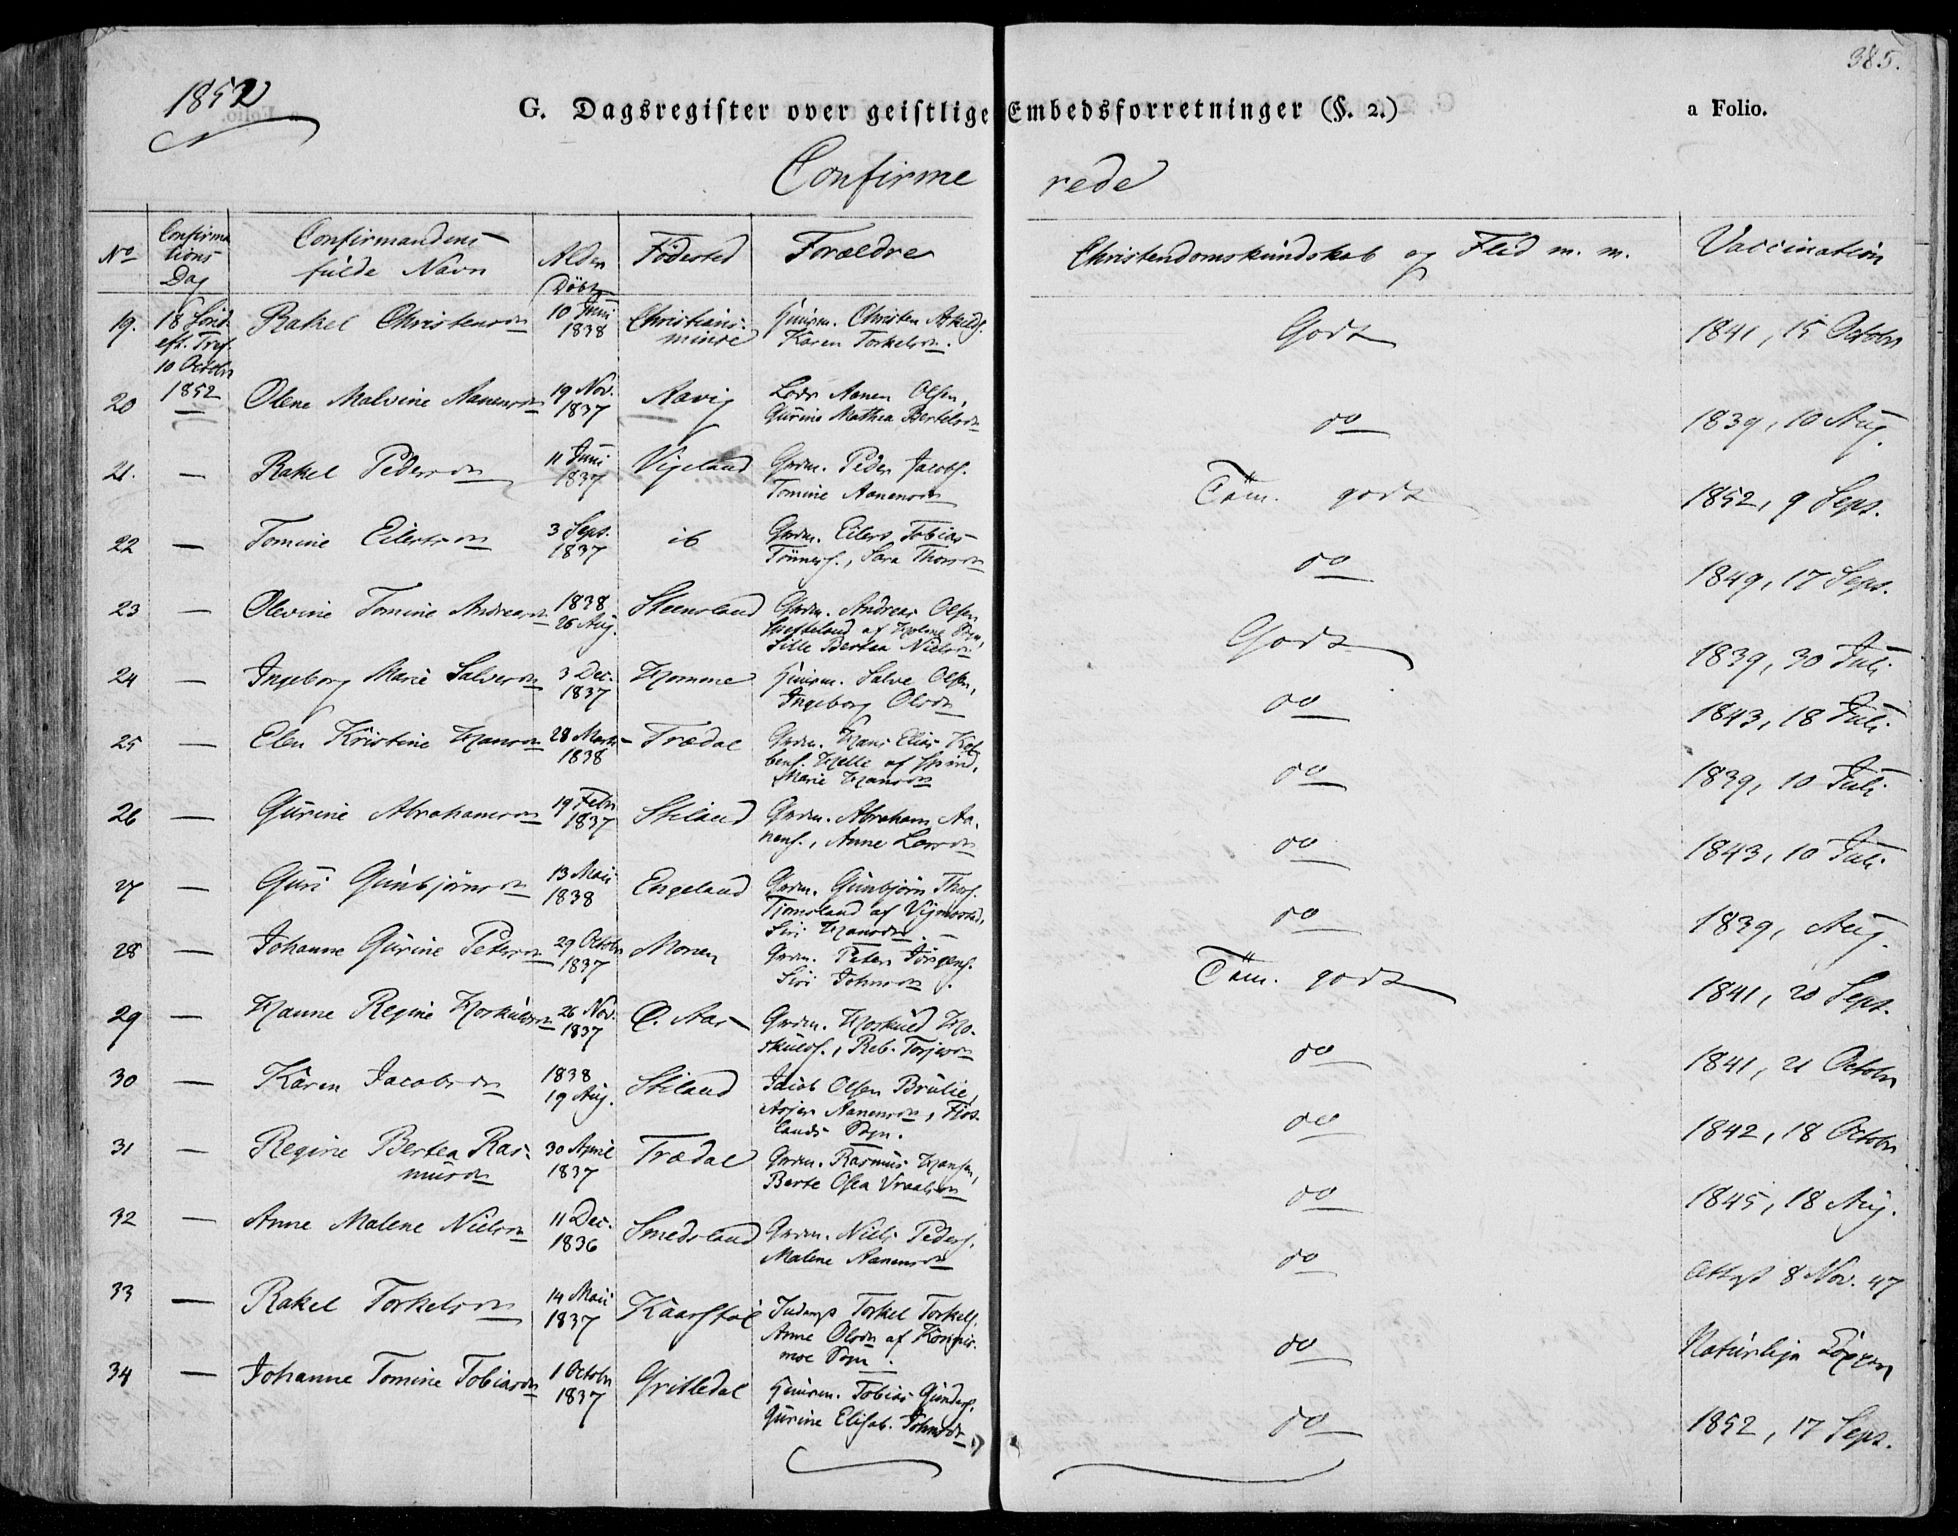 385.
1852
G. Dagsregister over geistlige Embedsforretninger (§. 2.) a Folio.
Confirmerede
No Confirmations Dag Confirmandens fulde Navn Alder Døbt Födested Forældre Christendomskundskab og Flid m. m. Vaccination
19. 18 Sönd. eft. Tref. 10 Octobr 1852 Rakel Christensdn 10 Juni 1838 Christiansminde Huusm. Christen Askilds. Karen Torkelsdn. Godt 1841, 15 Octobr
20 Olene Malvine Aanensdn 19 Nov. 1837 Aavig Lods Aanen Olsen, Gurine Mathea Bertelsdn do 1839, 10 Aug.
21. — Rakel Pedersdn 11 Juni 1837 Vigeland Grdm. Peder Jacobs. Tomine Aanensdn Tem. godt 1852, 9 Sept.
22 — Tomine Eilertsdn 3 Sept. 1837 ib Grdm. Eilert Tobias Tönness., Sara Thorsdn do 1849, 17 Sept.
23 — Olevine Tomine Andreasdn 1838 26 Aug. Steensland Grdm. Andreas Olsen af Holme Sogn, Sille Bertea Nielsdn Godt 1839, 30 Juli
24 — Ingeborg Marie Salvesdn 3 Dec. 1837 Homme Huusm. Salve Olsen, Ingeborg Olsdn do 1843, 18 Juli
25 — Elen Kristine Hansdn 28 Marts 1838 Trædal Grdm. Hans Elias Helle af Spind, Marie Hansdn do 1839, 10 Juli
26 — Gurine Abrahamsdn 19 Febr 1837 Skiland Grdm. Abraham Aanens., Anne Larsdn do 1843, 10 Juli
27 — Guri Gunbjörnsdn 13 Mai 1838 Engeland Grdm. Gunbjörn Thors. Tjomsland af Vigmostad, Siri Hansdn. do 1839, Aug.
28 — Johanne Gurine Petersdn 29 Octobr 1837 Monen Grdm. Peter Jörgens. Siri Johnsdn. Tem. godt 1841, 20 Sept.
29 — Hanne Regine Hoskuldsdn 26 Nov. 1837 O. Aas Grdm. Hoskuld Hoskulds., Reb. Torjersdn do 1841, 21 Octobr
30 — Karen Jacobsdn 1838 19 Aug. Skiland Jacob Olsen Brulie, Asjer Aanensdn, Fjotlands Sogn. do 1842, 18 Octobr
31 — Regine Bertea Rasmusdn 30 April 1837 Trædal Grdm. Rasmus Hansen, Berte Osea Vraalsdn do 1845, 18 Aug.
32 — Anne Malene Nielsdn 11 Dec. 1836 Smedsland Grdm. Niels Peders. Malene Aanensdn do Attest 8 Nov. 47
33 — Rakel Torkelsdn 14 Mai 1837 Kaarstöl Inderst Torkel Torkels. Anne Olsdn af Kongsmoe Sogn. do Naturlige Kopper
34 — Johanne Tomine Tobiasdn 1 Octobr 1837 Gritledal Huusm. Tobias Gunders. Gurine Elisab. Johnsdn do 1852, 17 Sept.